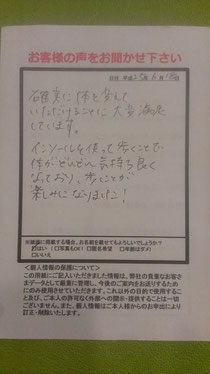 お客様の声をお聞かせ下さい
日付 平成25年6月1日
確実に体を変えて
いただけることに大変満足
しています。
インソールを使って歩くことで、
体がどんどん気持ち良く
なっており、歩くことが
楽しみになりました!
※紙面に掲載する場合、お名前を載せてもよろしいでしょうか?
はい (□写真もOK) □匿名希望 □年齢はダメ)
□いいえ
<個人情報の保護について>
この用紙にご記入いただきました情報は、弊社の貴重なお客さ
まデータとして厳重に管理し、今後のご案内をお送りするため
にのみ使用させていただきます。これ以外の目的で使用するこ
と及び、ご本人の許可なく外部への開示・提供することは一切
ございません。また、個人情報はご本人様からのお申出により
訂正・削除いたします。